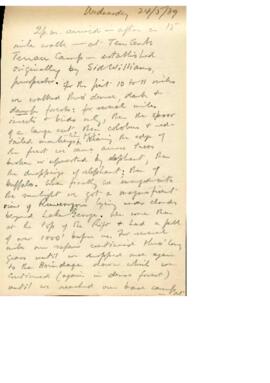 Wednesday 24/5/39
2 p.m. arrived - after a 15
mile walk - at Ten Cents
Camp - established
originally by Sid Williams,
prospector. For the first 10 to 11 miles
we walked thro' dense, dark &
damp forests: for several miles
insects & birds only, then the spoor
of a large cat, then colobus & red-
tailed monkeys. Nearing the edge of
the forest we came across trees
broken or uprooted by elephant, then
the droppings of elephant; then of
buffalo. When finally we emerged into
the sunlight we got a magnificent
view of Ruwenzori lying under clouds
beyond Lake George. We were then
at the top of the Rift & had a fall
of over 1000' before us. For several
miles our safari continued thro' long
grass until we dropped once again
to the down which we
continued (again in dense forest)
until we reached our base camp